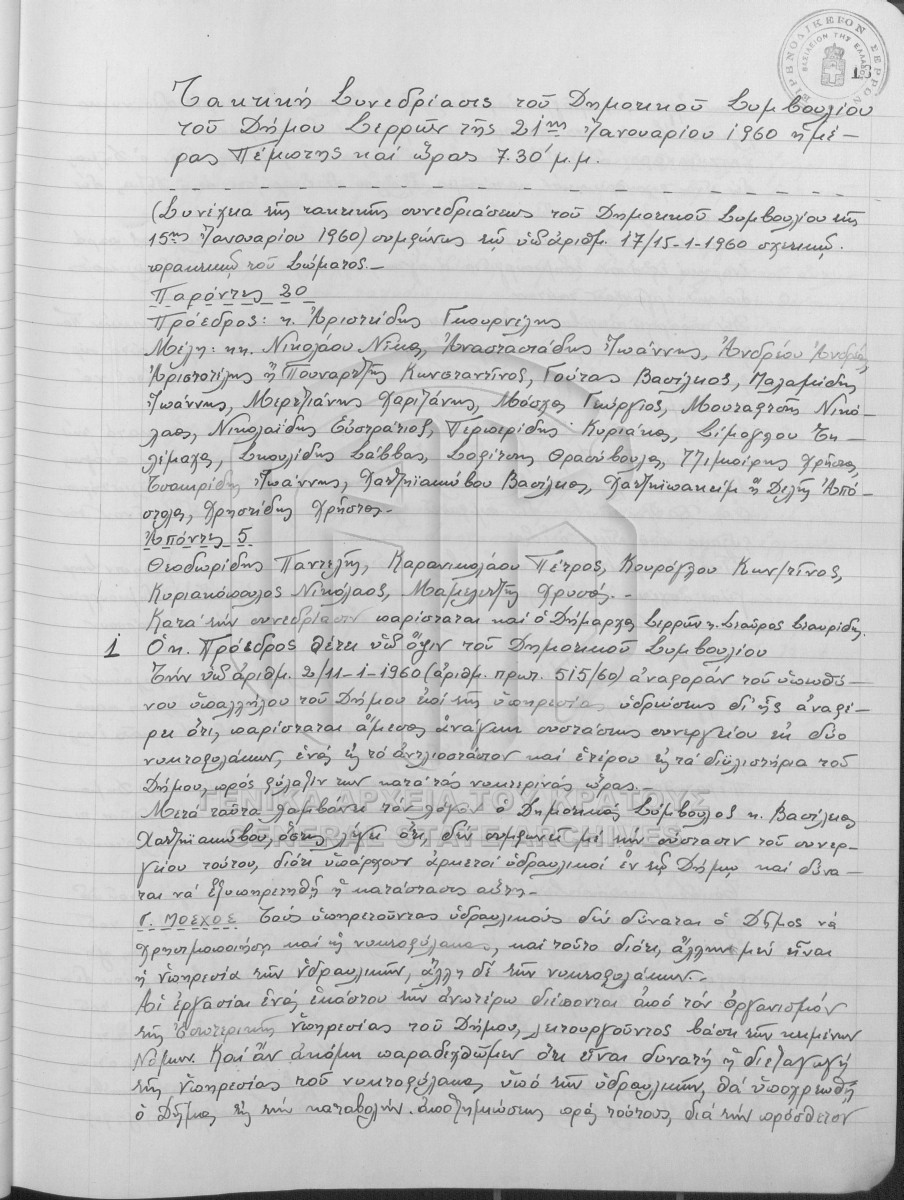 ΕΙΡΗΝΟΔΙΚΕΙΟΝ ΣΕΡΡΩΝ
ΒΑΣΙΛΕΙΟΝ ΤΗΣ ΕΛΛΑΔΟΣ
Τακτική Συνεδρίασις τοῦ Δημοτικοῦ Συμβουλίου
τοῦ Δήμου Σερρῶν τῆς 21ης Ἰανουαρίου 1960 ἡμέ-
ρας Πέμπτης καί ὥρας 7.30' μ.μ.
(Συνέχεια τῆς τακτικῆς συνεδριάσεως τοῦ Δημοτικοῦ Συμβουλίου τῆς
15ης Ἰανουαρίου 1960) συμφώνως τῷ ὑπ' ἀριθμ. 17/15-1-1960 σχετικῷ
πρακτικῷ τοῦ Σώματος.-
Παρόντες 20
Πρόεδρος: κ. Ἀριστείδης Γκουρνέλης
Μέλη: κκ. Νικολάου Νίκος, Ἀναστασιάδης Ἰωάννης, Ἀνδρέου Ἀνδρέας,
Ἀριστοτέλης ἤ Πουναρτζῆς Κωνσταντῖνος, Γούτας Βασίλειος, Παλαμίδης
Ἰωάννης, Μερτζιάνης Χαριζάνης, Μόσχος Γεώργιος, Μουταφτσῆς Νικό-
λαος, Νικολαΐδης Εὐστράτιος, Περπερίδης Κυριάκος, Σίμογλου Τη-
λέμαχος, Σκουλίδης Σάββας, Θρασύβουλος, Χρῆστος,
Τσακιρίδης Ἰωάννης, Χατζηϊακώβου Βασίλειος, Χατζηϊωακείμ ἤ Δελῆς Ἀπό-
στολος, Χρηστίδης Χρῆστος.-
Ἀπόντες 5
Θεοδωρίδης Παντελῆς, Καρανικολάου Πέτρος, Κουρόγλου Κων/τῖνος,
Κυριακόπουλος Νικόλαος, Μαμελετζῆς Χρυσός.-
Κατά τήν συνεδρίασιν παρίσταται καί ὁ Δήμαρχος Σερρῶν κ. Σταῦρος Σταυρίδης.
1 Ὁ κ. Πρόεδρος θέτει ὑπ' ὄψιν τοῦ Δημοτικοῦ Συμβουλίου
Τήν ὑπ' ἀριθμ. 2/11-1-1960 (ἀριθμ. πρωτ. 515/60) ἀναφοράν τοῦ ὑπευθύ-
νου ὑπαλλήλου τοῦ Δήμου ἐπί τῆς ὑπηρεσίας ὑδρεύσεως δι' ἧς ἀναφέ-
ρει ὅτι, παρίσταται ἄμεσος ἀνάγκη συστάσεως συνεργείου ἐκ δύο
νυκτοφυλάκων, ἑνός εἰς τό ἀντλιοστάσιον καί ἑτέρου εἰς τά διϋλιστήρια τοῦ
Δήμου, πρός φύλαξιν των κατά τάς νυκτερινάς ὥρας.
ΓΕΝΙΚΑ ΑΡΧΕΙΑ ΤΟΥ ΚΡΑΤΟΥΣ
GENERAL STATE ARCHIVES
Μετά ταῦτα λαμβάνει τόν λόγον ὁ Δημοτικός Σύμβουλος κ. Βασίλειος
Χατζηϊακώβου, ὅστις λέγει ὅτι, δέν συμφωνεῖ μέ τήν σύστασιν τοῦ συνερ-
γείου τούτου, διότι ὑπάρχουν ἀρκετοί ὑδραυλικοί ἐν τῷ Δήμῳ καί δύνα-
ται νά ἐξυπηρετηθῇ ἡ κατάστασις αὕτη.-
Γ. ΜΟΣΧΟΣ Τούς ὑπηρετοῦντας ὑδραυλικούς δέν δύναται ὁ Δῆμος νά
χρησιμοποιήσῃ καί ὡς νυκτοφύλακας, καί τοῦτο διότι, ἄλλη μέν εἶναι
ἡ ὑπηρεσία τῶν ὑδραυλικῶν, ἄλλη δέ τῶν νυκτοφυλάκων.-
Αἱ ἐργασίαι ἑνός ἑκάστου τῶν ἀνωτέρω διέπονται ἀπό τόν Ὀργανισμόν
τῆς Ἐσωτερικῆς Ὑπηρεσίας τοῦ Δήμου, λειτουργοῦντος βάσει τῶν κειμένων
Νόμων. Καί ἄν ἀκόμη παραδεχθῶμεν ὅτι εἶναι δυνατή ἡ διεξαγωγή
τῆς ὑπηρεσίας τοῦ νυκτοφύλακος ὑπό τῶν ὑδραυλικῶν, θά ὑποχρεωθῇ
ὁ Δῆμος εἰς τήν καταβολήν ἀποζημιώσεως πρός τούτους, διά τήν πρόσθετον